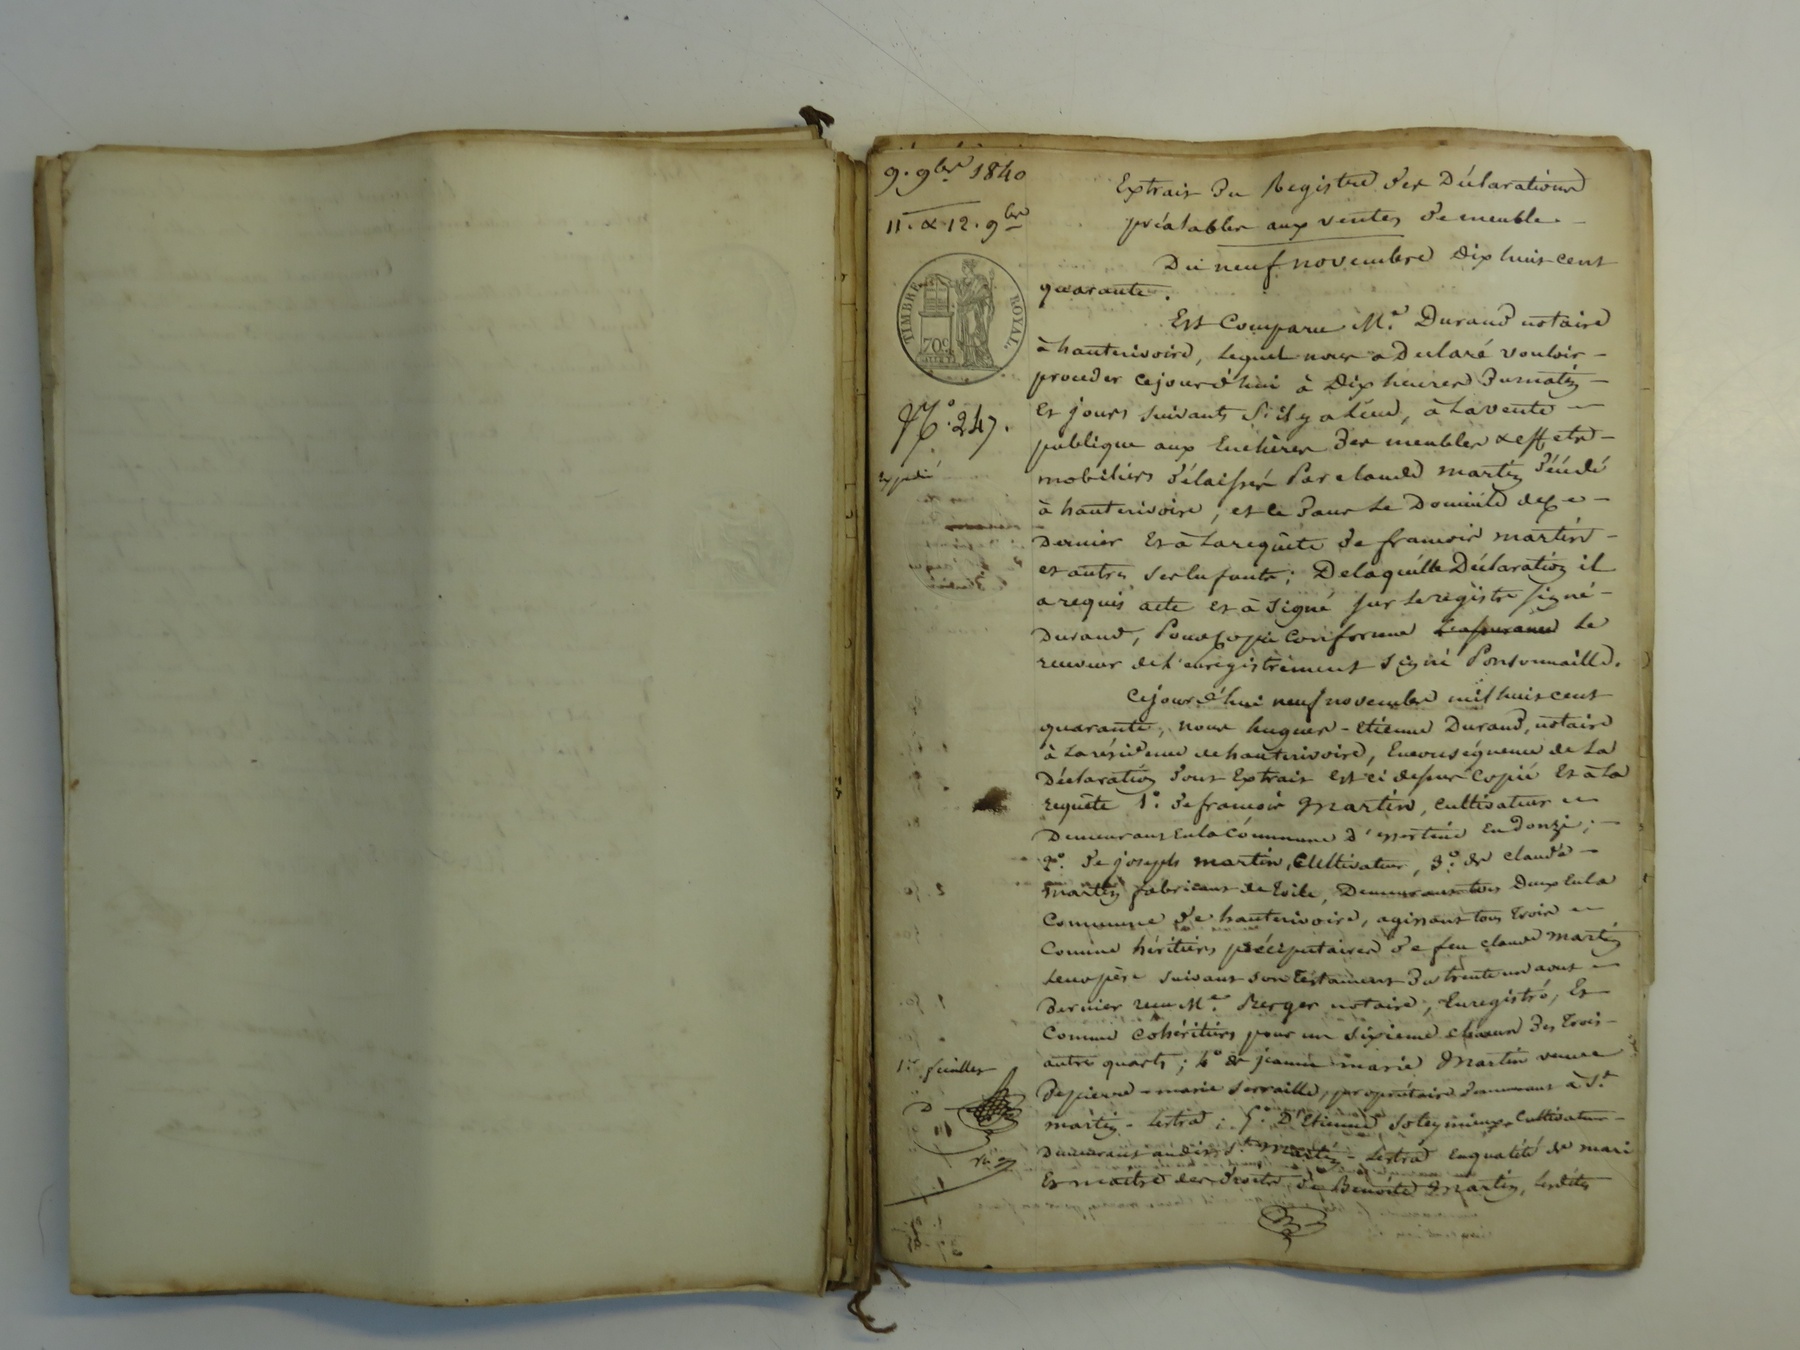 9. 9bre 1840
11. & 12. 9bre
TIMBRE ROYAL.
70c
No. 247.
expédié
Extrait du Registre des Déclarations
préalables aux ventes de meuble. -
Du neuf novembre dix huit cent
quarante.
Est Comparu Me. Durand notaire
à hauterivoire, lequel nous a Déclaré vouloir -
procéder cejourd'hui à Dix heures du matin -
et jours suivants s'il y a lieu, à la vente -
publique aux Enchères des meubles & effets -
mobiliers délaissés Par claude martin décédé
à hauterivoire, et ce dans le Domicile de ce -
Dernier Et à la requête de françois martin -
et autres ses enfants; De laquelle Déclaration il
a requis acte et a signé sur le registre signé -
Durand, Pour copie conforme Le
receveur de l'enregistrement signé Ponsonnaille.
Cejourd'hui neuf novembre mil huit cent
quarante, nous hugues - Etienne Durand, notaire
à la résidence de hauterivoire, En conséquence de La
Déclaration dont Extrait est ci dessus copié Et à la
requête 1°. de françois Martin, cultivateur -
Demeurant En la Commune d'essertine En Donzi; -
2°. de joseph martin, Cultivateur, 3°. de claude -
Martin fabricant de toile, Demeurant tous Deux En la
Commune de hauterivoire, agissant tous trois -
Comme héritiers préciputaires de feu claude martin
leur père suivant son testament du trente un aout -
Dernier reçu Me. Berger notaire, Enregistré, Et
Comme cohéritiers pour un sixieme chacun des trois -
autres quarts; 4° de jeanne marie Martin veuve
De pierre - marie Servaille, propriétaire demeurant à St.
martin - Lestra; 5°. D'Etienne Soleymieux, Cultivateur -
Demeurant audit St. Martin - Lestra En qualité de mari
Et maitre des droits de Benoite Martin, Lesdites
1er. feuillet